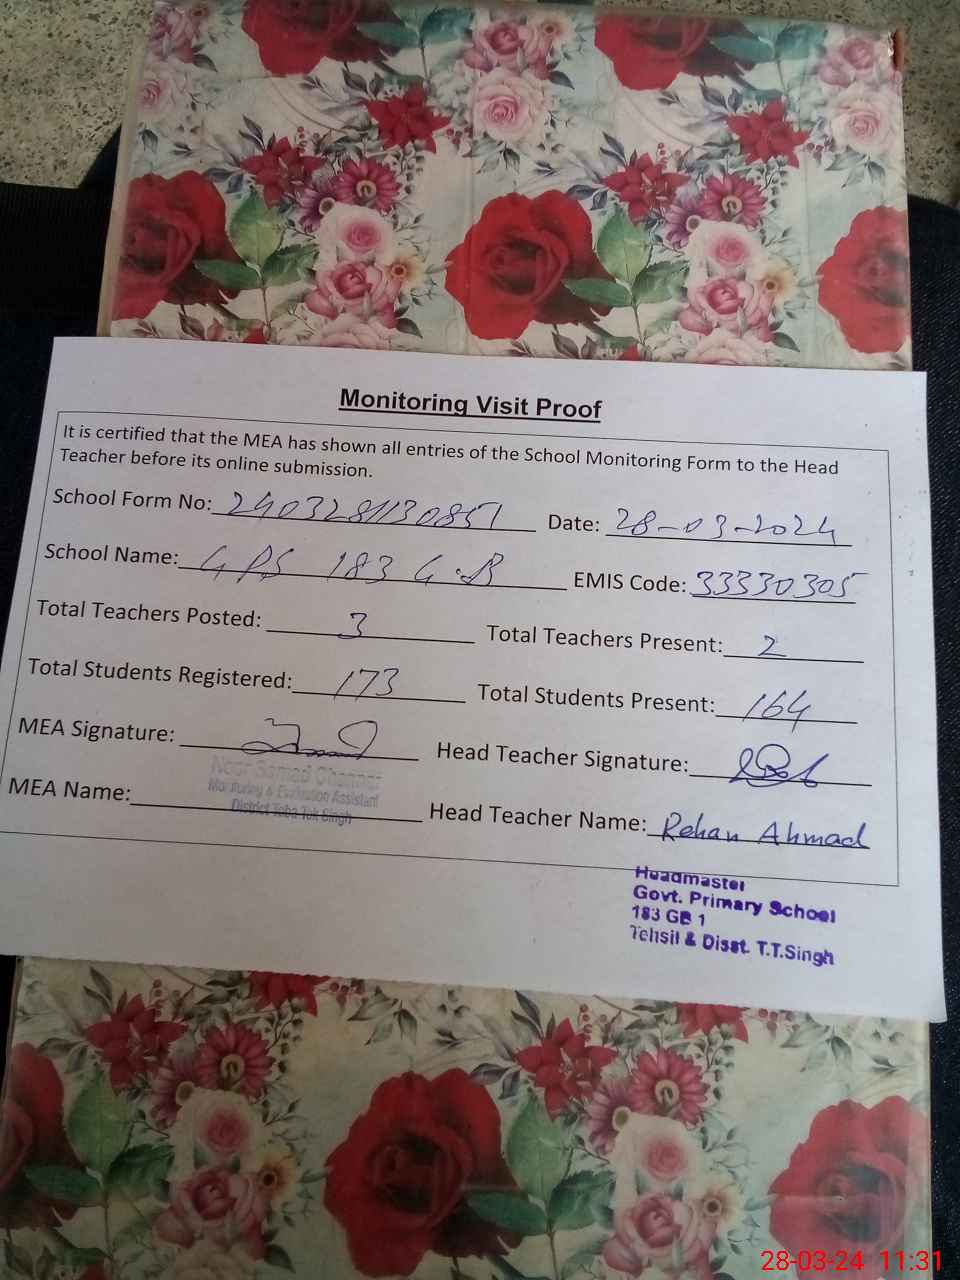 Monitoring Visit Proof
It is certified that the MEA has shown all entries of the School Monitoring Form to the Head
Teacher before its online submission.
School Form No: 2403281130851 Date: 28-03-2024
School Name: GPS 183 G.B EMIS Code: 33330305
Total Teachers Posted: 3 Total Teachers Present: 2
Total Students Registered: 173 Total Students Present: 164
MEA Signature: Head Teacher Signature:
Monitoring & Evaluation Assistant
District Toba Tek Singh
MEA Name: Head Teacher Name: Rehan Ahmad
Headmaster
Govt. Primary School
183 GB 1
Tehsil & Disst. T.T.Singh
28-03-24 11:31